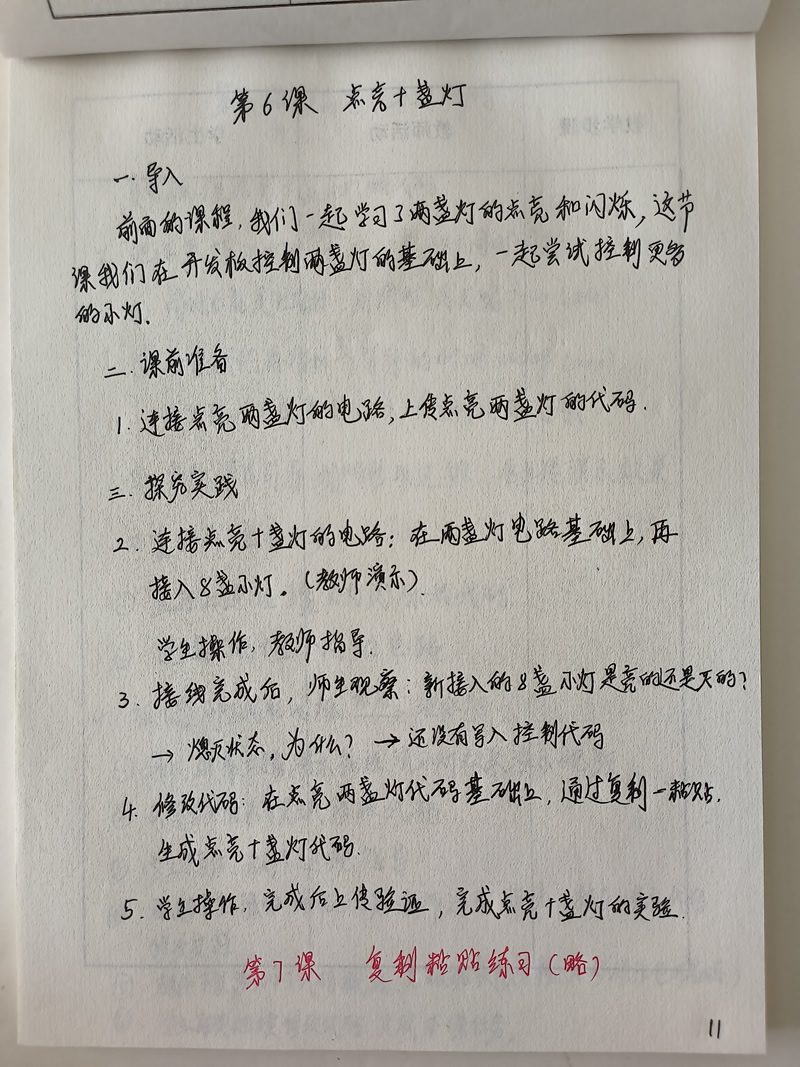 第6课 点亮十盏灯
一.导入
前面的课程,我们一起学习了两盏灯的点亮和闪烁,这节
课我们在开发板控制两盏灯的基础上,一起尝试控制更多
的小灯.
二.课前准备
1.连接点亮两盏灯的电路,上传点亮两盏灯的代码.
三.探究实践
2.连接点亮十盏灯的电路:在两盏灯电路基础上,再
接入8盏小灯。(教师演示).
学生操作,教师指导.
3.接线完成后,师生观察:新接入的8盏小灯是亮的还是灭的?
→熄灭状态,为什么?→还没有写入控制代码
4.修改代码:在点亮两盏灯代码基础上,通过复制—粘贴.
生成点亮十盏灯代码.
5.学生操作,完成后上传验证,完成点亮十盏灯的实验.
第7课 复制粘贴练习(略)
11